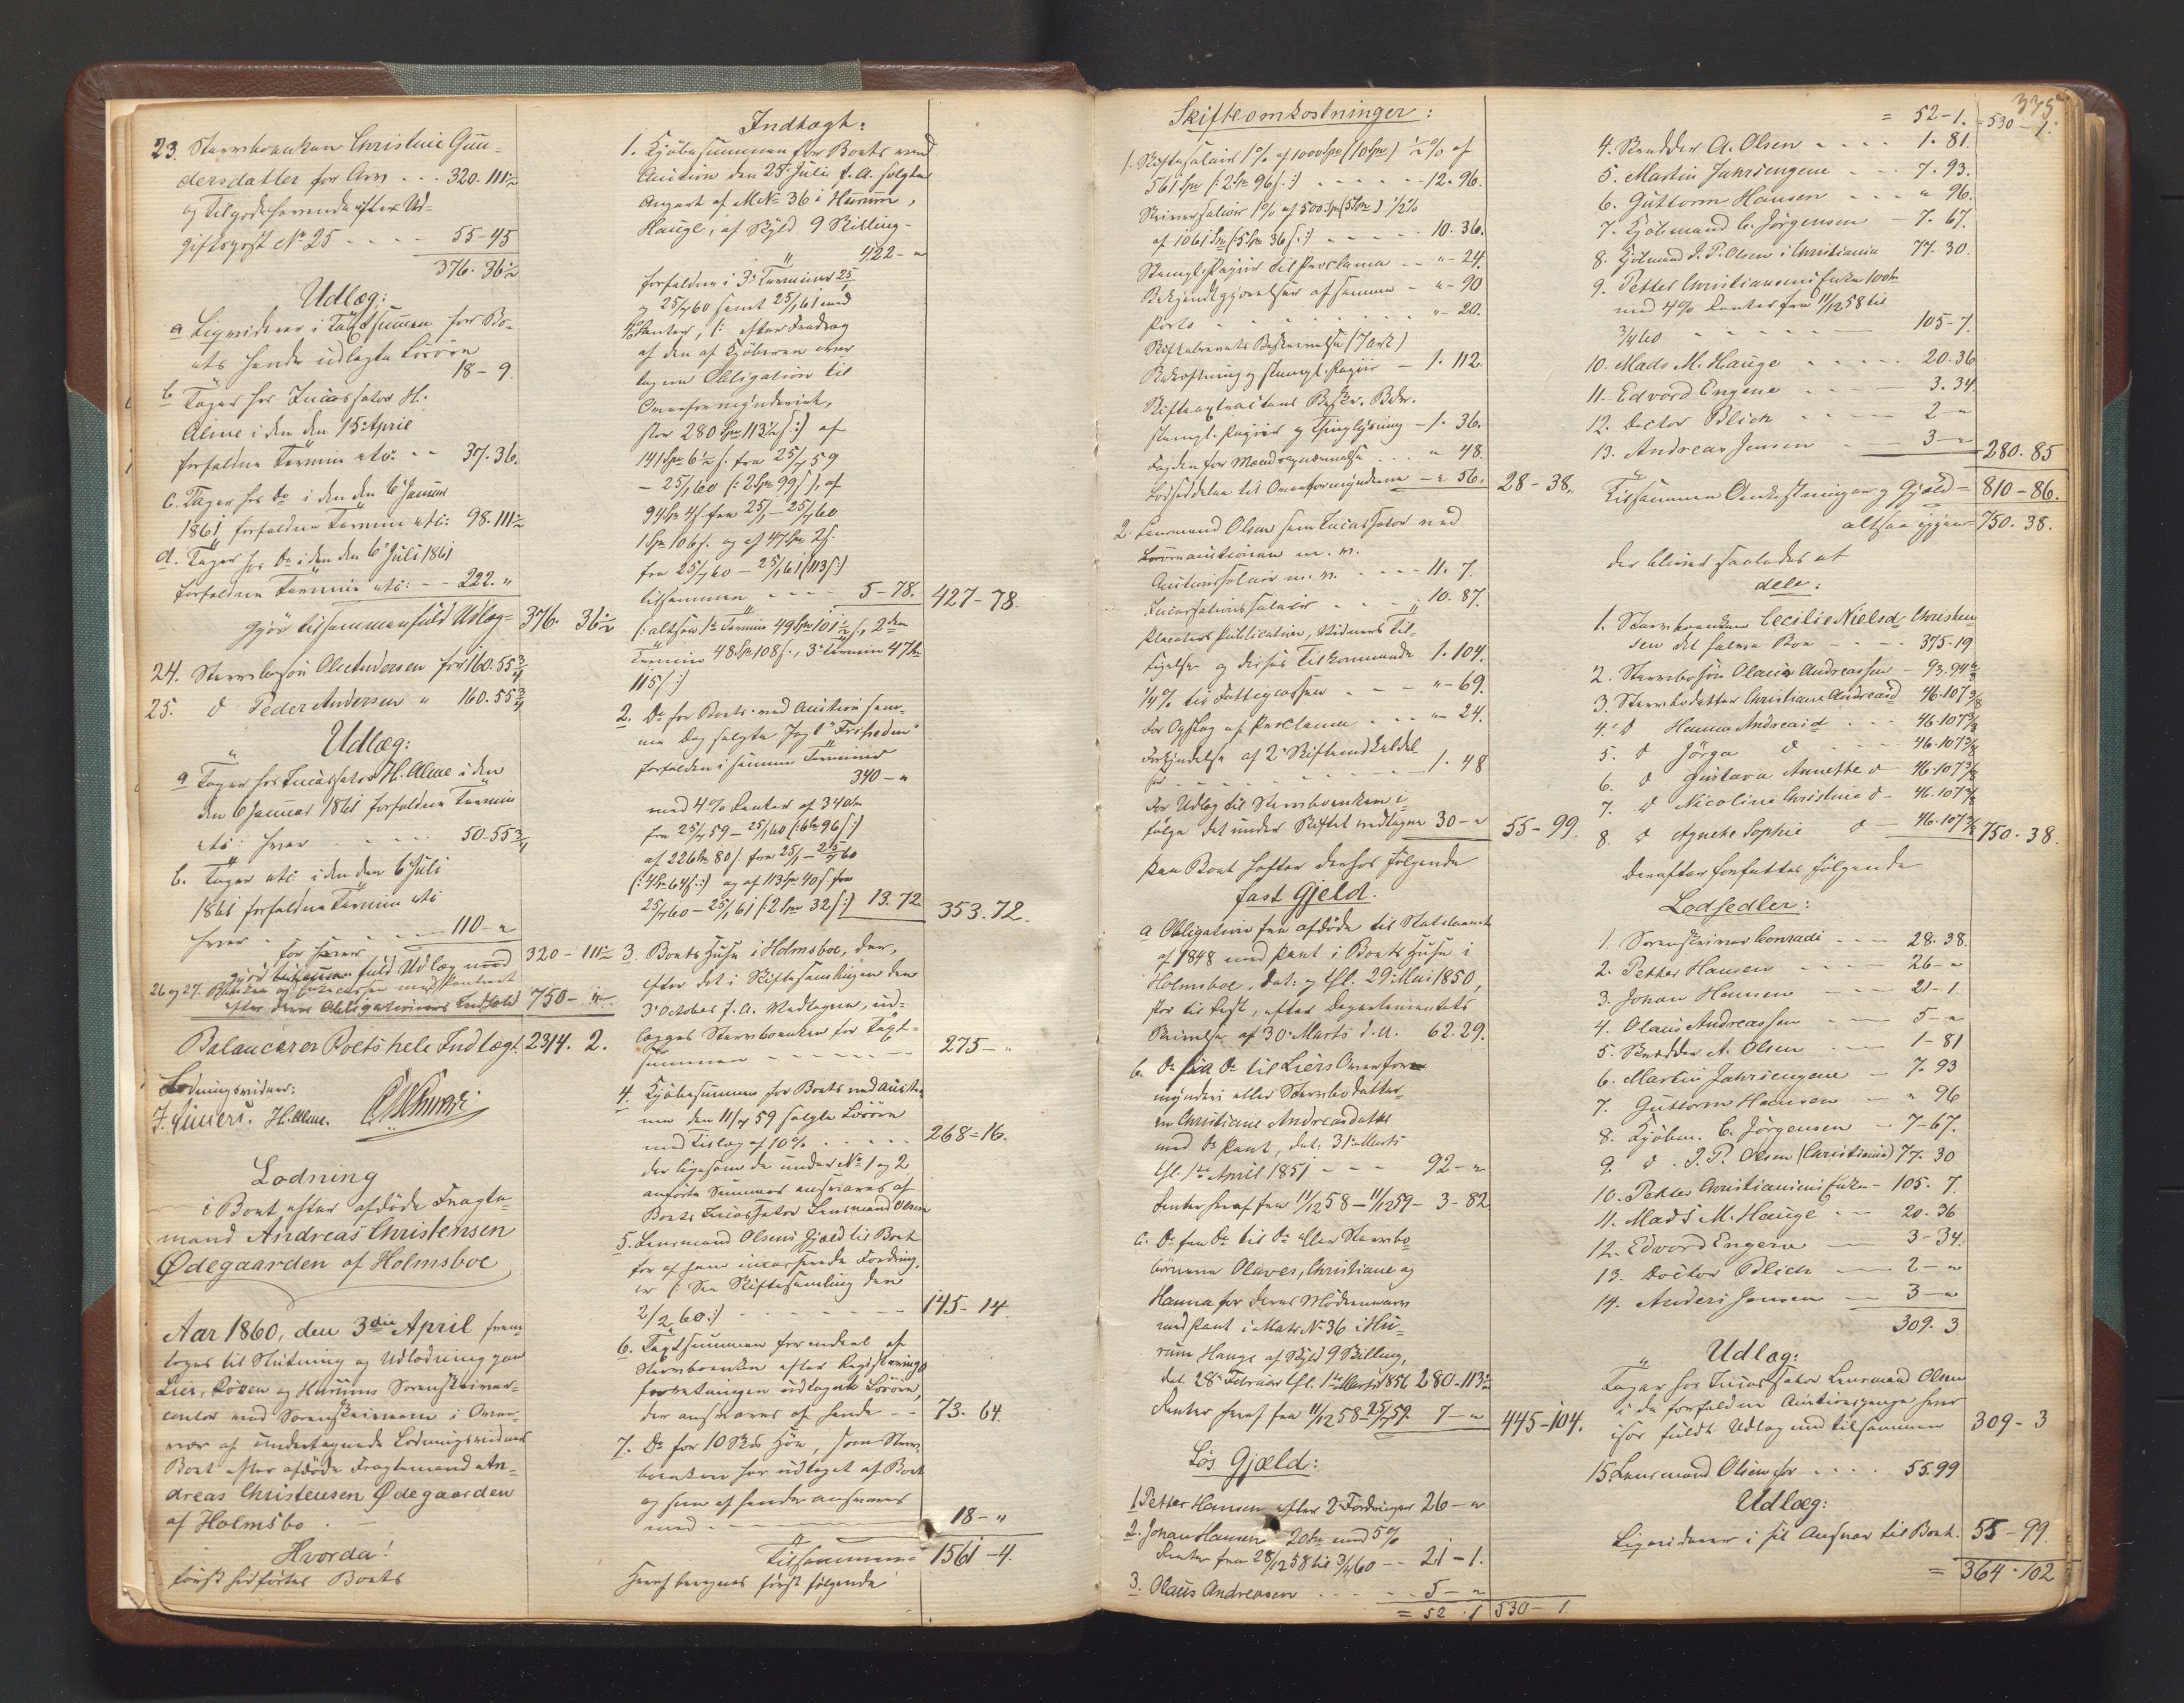 23. Stervboenken Christine Gun-
dersdatter for Arv . . . 320. 111½
og tilgodehavende efter Ud-
giftspost No 25 - - - - 55-45
376. 36½
Udlæg:
a Liqviderer i Taxtsummen for Bo-
ets hende udlagte Løsøre
18-9.
b Tager hos Incassator H.
Alme i den den 15de April
forfaldne Termin etc: - - 37. 36.
c. Tager hos Do i den den 6te Januar
1861 forfaldne Termin etc: 98. 111½
d. Tager hos Do i den den 6te Juli 1861
forfaldne Termin etc: - - 222. "
Gjør tilsammen fuld Udlæg = 376. 36½
24. Stervboesøn Ole Andersen for 160. 55¾
25. d Peder Andersen " 160. 55¾
Udlæg:
a Tager hos Incassator H. Alme i den
den 6 Januar 1861 forfaldne Termin
etc: hver - - - - 50-55¾
b. Tager etc: i den den 6 Juli
1861 forfaldne Termin etc
hver - - - - 110-"
for hver
Gjør fuld Udlæg med 320-111½
26 og 27.
efter deres Obligationers Indhold 750-"
Balancerer Boets hele Indtægt. 2314. 2.
Lodningsvidner:
H. Alme.
Lodning
i Boet efter afdøde Fragte-
mand Andreas Christensen
Ødegaarden af Holmsboe
Aar 1860, den 3die April frem-
toges til Slutning og Udlodning paa
Lier, Røken og Hurums Sorenskriver-
contor ved Sorenskriveren i Over-
vær af undertegnede Lodningsvidner
Boet efter afdøde Fragtemand An-
dreas Christensen Ødegaarden
af Holmsbo.
Hvorda!
først hidføres Boets
Indtægt:
1. Kjøbesummen for Boets ved
Auction den 25de Juli f. A. solgte
Anpart af M No 36 i Hurum,
Hauge, af Skyld 9 Skilling-
422-"
forfalden i 3de Terminer 25/1
og 25/7 60 samt 25/1 61 med
4% Renter, (: efter Fradrag
af den af Kjøberen over-
tagne Obligation til
Overformynderiet,
stor 280 Spd 113½ s :) af
141 Spd 6½ s. fra 25/7 59
- 25/1 60 (: 2 Spd 99 s), af
94 Spd 4 s fra 25/1 - 25/7 60
1 Spd 106 s. og af 47 Spd 2 s.
fra 25/7 60 - 25/1 61 (113 s:)
tilsammen - - - - 5-78. 427-78.
(: altsaa 1ste Termin 49 Spd 101½ s., 2den
Termin 48 Spd 108 s., 3de Termin 47 Spd
115 s :)
2. Do for Boets ved Auction sam-
me Dag solgte Jagt "Friheden"
forfalden i samme Terminer
340-"
med 4% Renter af 340 Spd
fra 25/7 59 - 25/1 60 (: 6 Spd 96 s :)
af 226 Spd 80 s. fra 25/1 - 25/7 60
(: 4 Spd 64 s :) og af 113 Spd 40 s. fra
25/7 60 - 25/1 61 (: 2 Spd 32 s :) 13. 72 353. 72.
3. Boets Huse i Holmsboe, der,
efter det i Skiftesamlingen den
3de October f. A. Vedtagne, ud-
lægges Stervboenken for Taxt-
summen - - - - - - 275-"
4. Kjøbesummen for Boets ved Auctio-
nen den 11/7 59 solgte Løsøre
med Tillæg af 10% . . . . 268-16.
der ligesom de under No 1 og 2
anførte Summer ansvares af
Boets Incassator Lensmand Olsen
5. Lensmand Olsens Gjæld til Boet
for af ham incasserede Fordring-
er (: See Skiftesamling den
2/2 60 :) - - - - - - 145-14.
6. Taxtsummen for endeel af
Stervboenken efter Registrerings
forretningen udtagne Løsøre,
der ansvares af hende - - 73. 64.
7. Do for 10 Skd Høe, som Sterv-
boenken har udtaget af Boet
og som af hende ansvares
med - - - - - 18-"
Tilsammen = 1561-4.
Heraf beregnes først følgende
Skifteomkostninger:
1. Skiftesalair 1% af 1000 Spd (10 Spd) ½% af
561 Spd (: 2 Spd 96 s. :) - - - - 12. 96.
Skriversalair 1% af 500 Spd (5 Spd) ½%
af 1061 Spd (: 5 Spd 36 s. :) - - - - 10. 36.
Stempl. Papiir til Proclama - - "-24.
Bekjendtgjørelser af samme - "-90
Porto - - - - - - "-20.
Skiftebrevets Beskrivelse (7 Ark)
Bekostning og stempl. Papiir - 1. 112.
Skifteextractens Beskr. Bek.
stempl. Papiir og Thinglysning - 1. 36.
Fogden for Mændsopnævnelse . . . " 48.
Lodseddelen til Overformynderne - " 56. 28-38.
2. Lensmand Olsen som Incassator ved
Løsøreauctionen m. v.
Auctionssalair m. v. - - - - 11. 7.
Incassationssalair - - - - 10. 87.
Placaters Publication, Vidners Til-
sigelse og disses Tilkommende 1. 104.
¼% til Fattigcassen - - - "-69.
For Opslag af Proclama - - - "-24.
Forkyndelse af 2de Skifteindkaldel-
ser - - - - - - 1. 48
For Udlæg til Stervboenken i-
følge det under Skiftet vedtagne 30-" 55-99.
Paa Boet hefter derhos følgende
fast Gjeld.
a Obligation fra afdøde til Statslaanet
af 1848 med Pant i Boets Huse i
Holmsboe, dat: og thl. 29de Mai 1850,
stor til Rest, efter Departementets
Skrivelse af 30te Marts d. A. 62. 29.
b. Do fra Do til Liers Overfor-
mynderi eller Stervbodatter-
en Christiane Andreasdatter
med Do Pant, dat: 31te Marts
thl. 1ste April 1851 - - - 92-"
Renter heraf fra 11/12 58 - 11/12 59 - 3-82
c. Do fra Do til Do eller Stervbo-
børnene Olaves, Christiane og
Hanna for deres Mødrenearv
med Pant i Matr. No 36 i Hu-
rum Hauge af Skyld 9 Skilling,
dat. 28de Februar thl. 1ste Marts 1856 280-113½
Renter heraf fra 11/12 58 - 25/7 59 - 7-" 445-104.
Løs Gjæld:
1 Petter Hansen efter 2de Fordringer 26-"
2. Johan Hansen 20 Spd med 5%
Renter fra 28/12 58 til 3/4 60 - - 21-1.
3. Olaus Andreasen - - - - 5-"
= 52. 1 530-1.
335
= 52-1. = 530-1.
4. Skrædder A. Olsen . . . . 1. 81
5. Martin Jahrsengene - - - 7. 93.
6. Guttorm Hansen . . . " 96.
7. Kjøbmand C. Jørgensen - 7. 67.
8. Kjøbmand J. P. Olsen i Christiania 77. 30.
9. Petter Christiansens Enke 100 Spd
med 4% Renter fra 11/12 58 til
3/4 60 - - - - - 105-7.
10. Mads M. Hauge . . . . . 20. 36
11. Edvard Engene - - - 3. 34
12. Doctor Blich - - - - 2-"
13. Andreas Jensen - - - 3-" 280. 85
Tilsammen Omkostninger og Gjæld = 810-86.
altsaa igjen = 750. 38.
der bliver saaledes at
dele:
1. Stervboenken Cecilie Nielsd. Christen-
sen det halve Boe - - - - 375-19
2. Stervbosøn Olaus Andreassen - 93. 94¾
3. Stervbodatter Christiane Andreasd 46. 107⅜
4. d Hanna Andreasd - - - 46. 107⅜
5. d Jørga d - - - 46. 107⅜
6. d Gustava Annette d - 46. 107⅜
7. d Nicoline Christine d - 46. 107⅜
8. d Agnethe Sophie d - 46. 107⅜ 750. 38.
Derefter forfattes følgende
Lodsedler:
1. Sorenskriver Conradi - - - 28. 38.
2. Petter Hansen - - - - 26-"
3. Johan Hansen - - - - 21-1.
4. Olaus Andreassen - - - 5-"
5. Skrædder A. Olsen - - 1-81
6. Martin Jahrsengene - - 7. 93
7. Guttorm Hansen - - " 96
8. Kjøbm. C. Jørgensen - 7-67.
9. d. J. P. Olsen (Christiania) 77. 30
10. Petter Christiansens Enke - 105. 7.
11. Mads M. Hauge - - 20. 36
12. Edvard Engene - - 3-34.
13. Doctor Blich - - 2-"
14. Anders Jensen - - 3-"
309. 3
Udlæg:
Tager hos Incassator Lensmand Olsen
i de forfaldne Auctionspenge hver
især fuldt Udlæg med tilsammen 309-3
15. Lensmand Olsen for . . . . 55. 99
Udlæg:
Liqviderer i sit Ansvar til Boet. 55-99.
= 364. 102